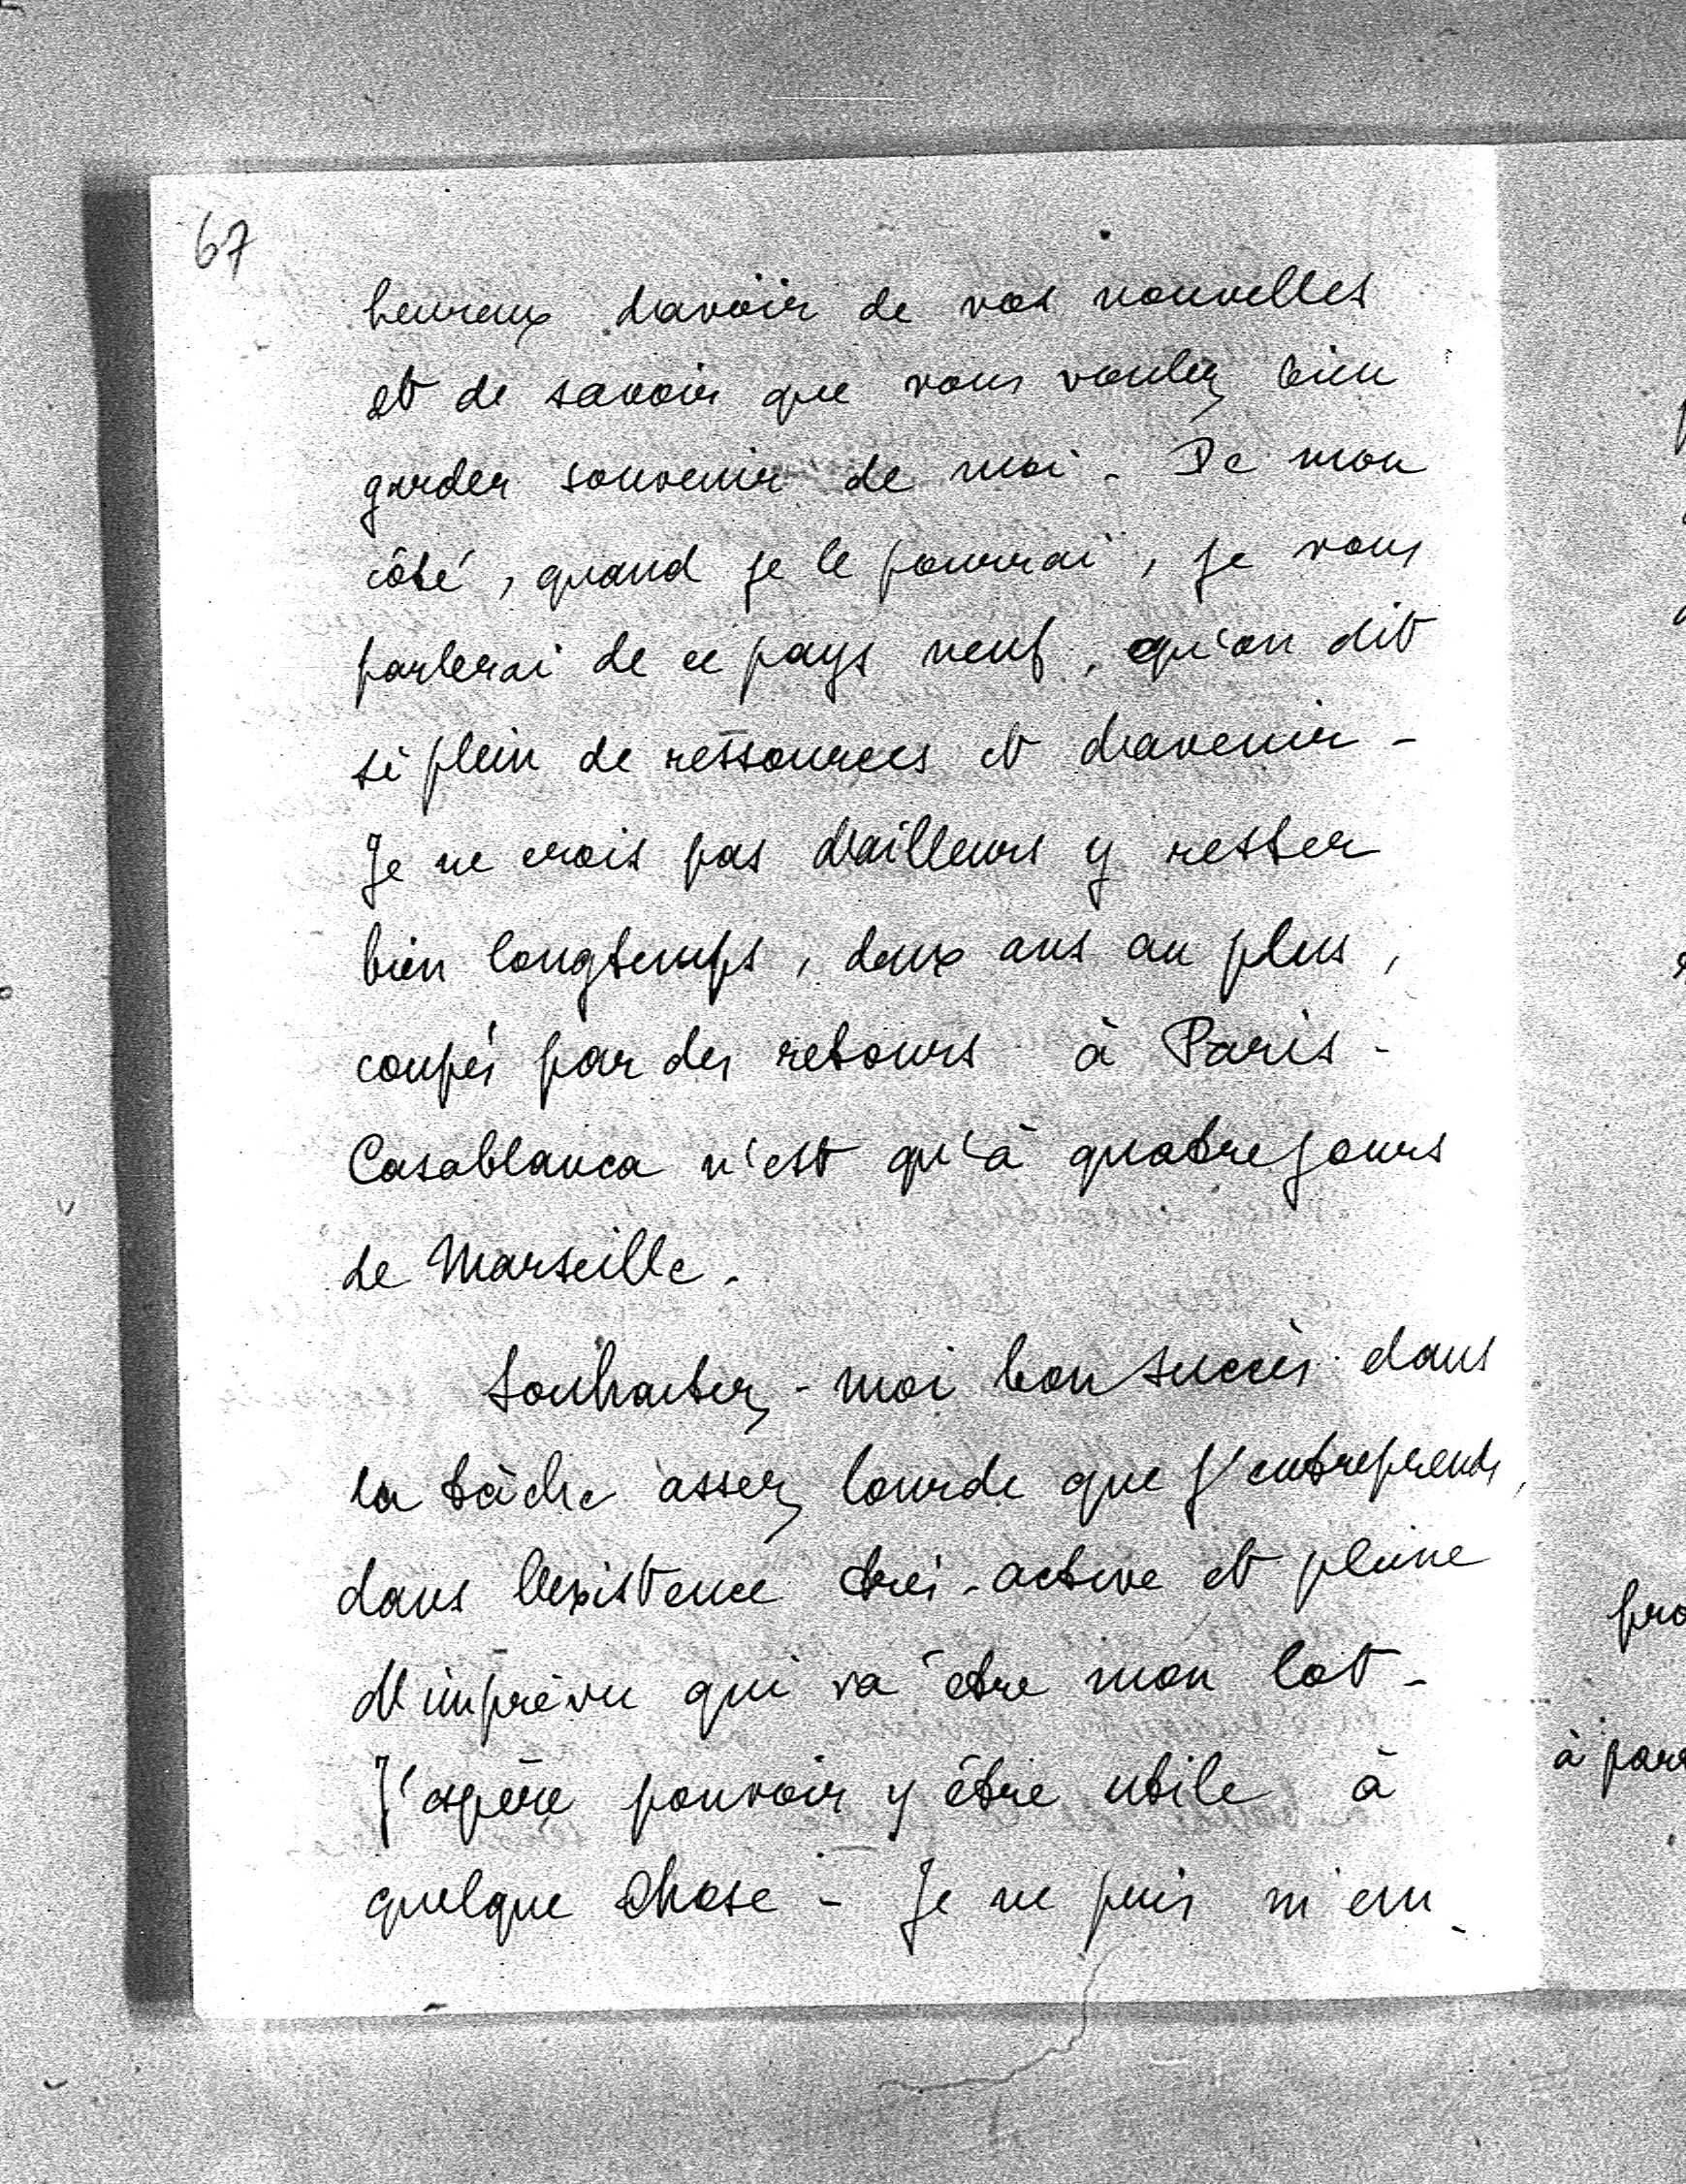 67
heureux d'avoir de vos nouvelles
et de savoir que vous voulez bien
garder souvenir de moi. De mon
côté, quand je le pourrai, je vous
parlerai de ce pays neuf, qu'on dit
si plein de ressources et d'avenir -
Je ne crois pas d'ailleurs y rester
bien longtemps, deux ans au plus,
coupés par des retours à Paris -
Casablanca n'est qu'à quatre jours
de Marseille.
Souhaitez-moi bon succès dans
la tâche assez lourde que j'entreprends,
dans l'existence très-active et pleine
d'imprévu qui va être mon lot -
J'espère pouvoir y être utile à
quelque chose - Je ne puis m'em-
pro
à par